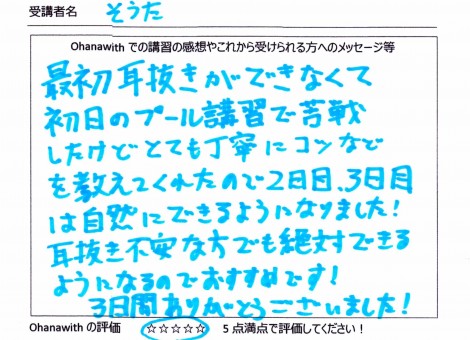 受講者名 そうた
Ohanawith での講習の感想やこれから受けられる方へのメッセージ等
最初耳抜きができなくて
初日のプール講習で苦戦
したけどとても丁寧にコツなど
を教えてくれたので2日目、3日目
は自然にできるようになりました!
耳抜き不安な方でも絶対できる
ようになるのでおすすめです!
3日間ありがとうございました!
Ohanawith の評価 ☆☆☆☆☆ 5点満点で評価してください!